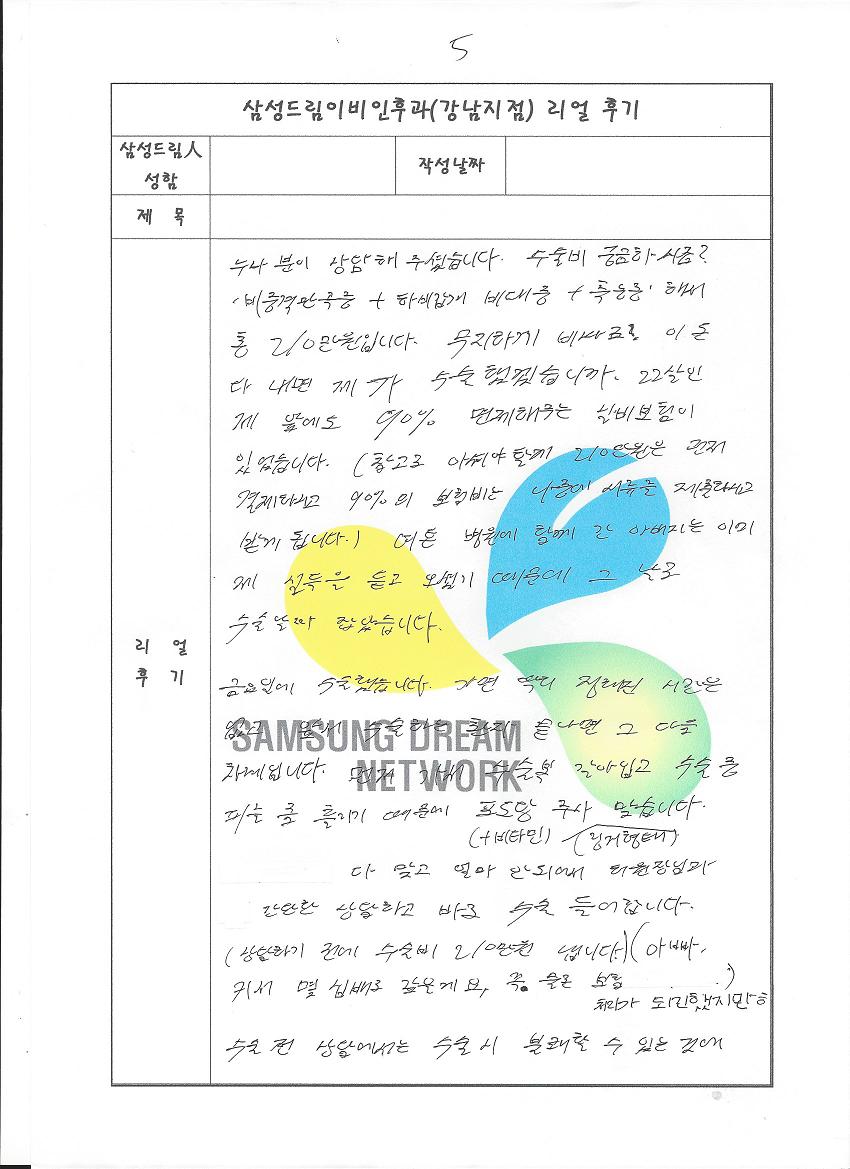 5
삼성드림이비인후과(강남지점) 리얼 후기
삼성드림人
성함
작성날짜
제 목
누나 분이 상담해 주셨습니다. 수술비 궁금하시죠?
'비중격만곡증 + 하비갑개 비대증 + 축농증' 해서
총 210만원입니다. 무지하게 비싸죠 이 돈
다 내면 제가 수술했겠습니까. 22살인
제 앞에도 90% 면제해주는 실비보험이
있었습니다. (참고로 아셔야 할게 210만원은 먼저
결제하시고 90%의 보험비는 나중에 서류를 제출하시고
받게 됩니다.) 여튼 병원에 함께 간 아버지는 이미
제 설득을 듣고 오셨기 때문에 그 날로
수술날짜 잡았습니다.
리 얼
후 기
금요일에 수술했습니다. 가면 딱히 정해진 시간은
없고 앞에 수술하는 끝나면 그 다음
차례입니다. 먼저 가서 수술복 갈아입고 수술 중
피를 좀 흘리기 때문에 포도당 주사 맞습니다.
(+비타민) (링거형태)
다 맞고 얼마 안되에 원장님과
간단한 상담하고 바로 수술 들어갑니다.
(상담하기 전에 수술비 210만원 냅니다.) (아빠,
커서 몇 십배로 갚은게요, 물론 보험
처리가 되긴했지만ㅎ
수술 전 상담에서는 수술 시 불쾌할 수 있는 것에
SAMSUNG DREAM
NETWORK